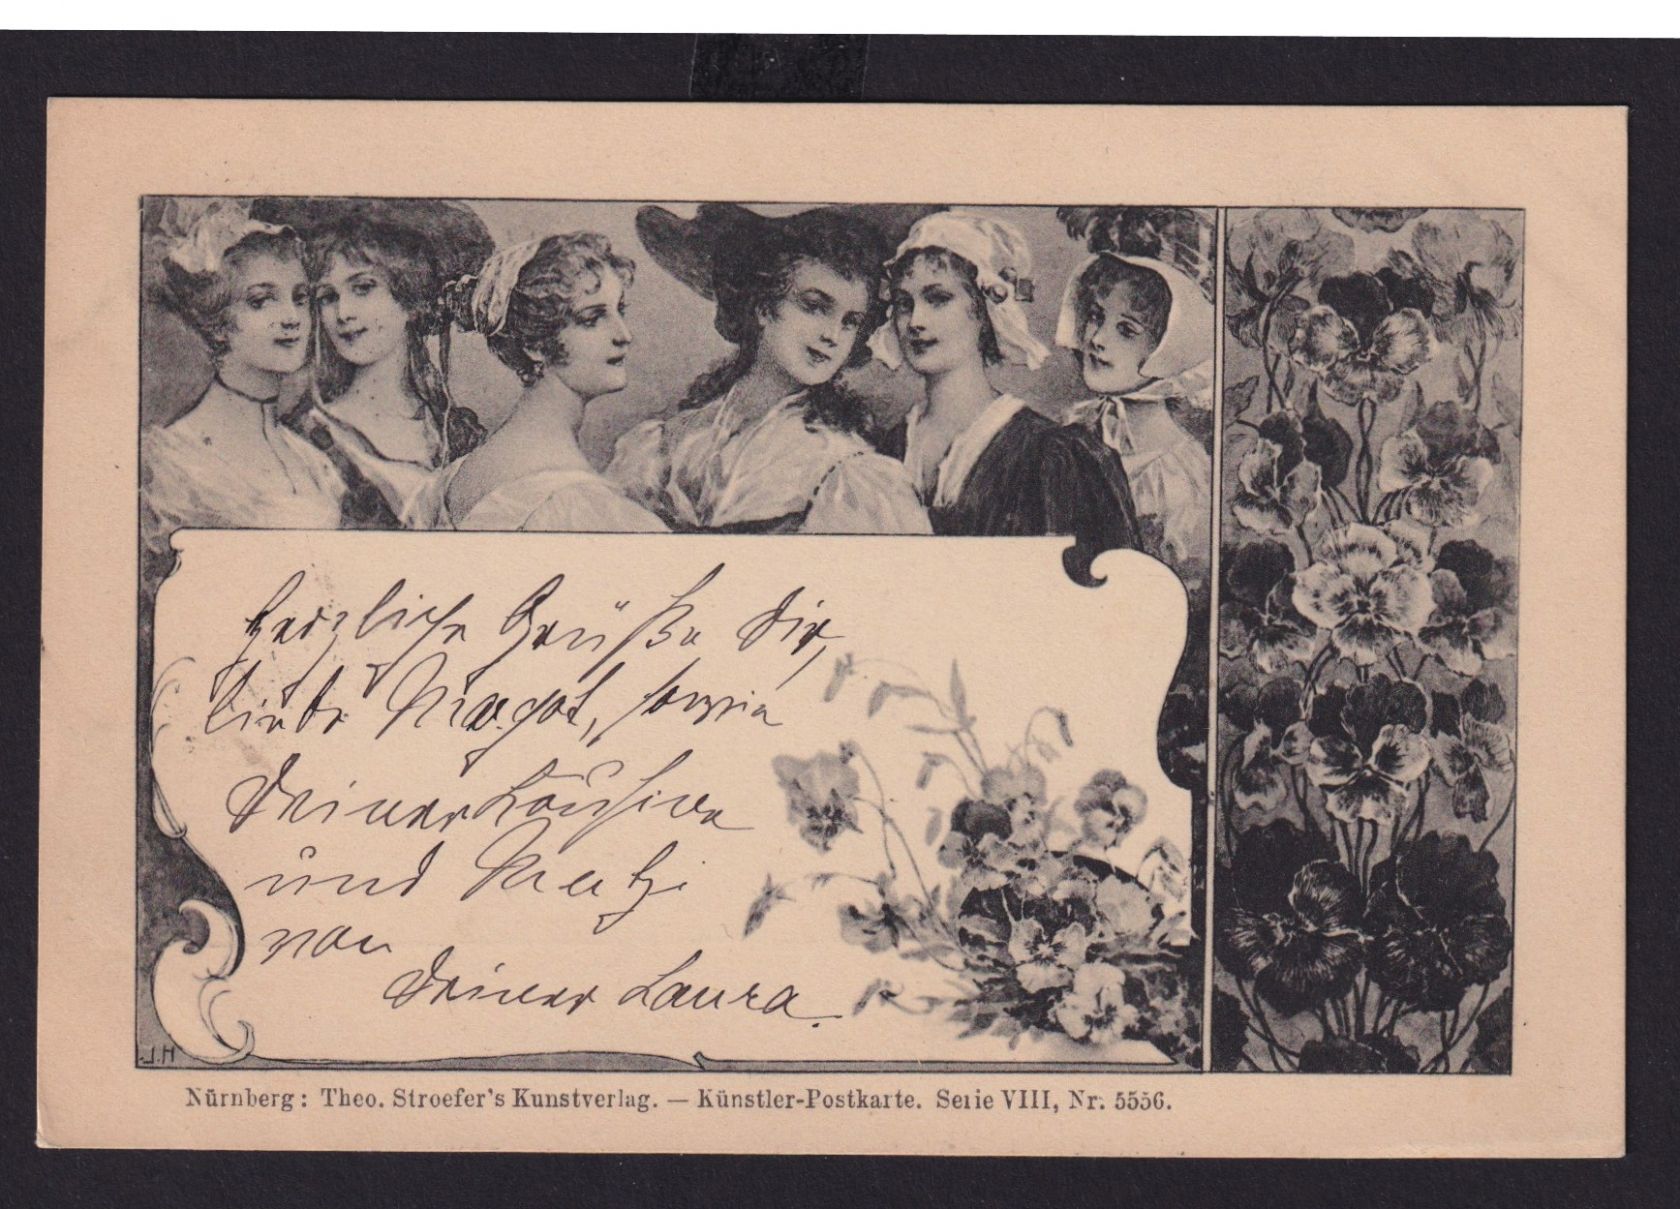 Herzliche Grüße Dir,
liebe Margot, sowie
Deiner Cousine
und
von
Deiner Laura.
J.H
Nürnberg: Theo. Stroefer's Kunstverlag. — Künstler-Postkarte. Serie VIII, Nr. 5556.